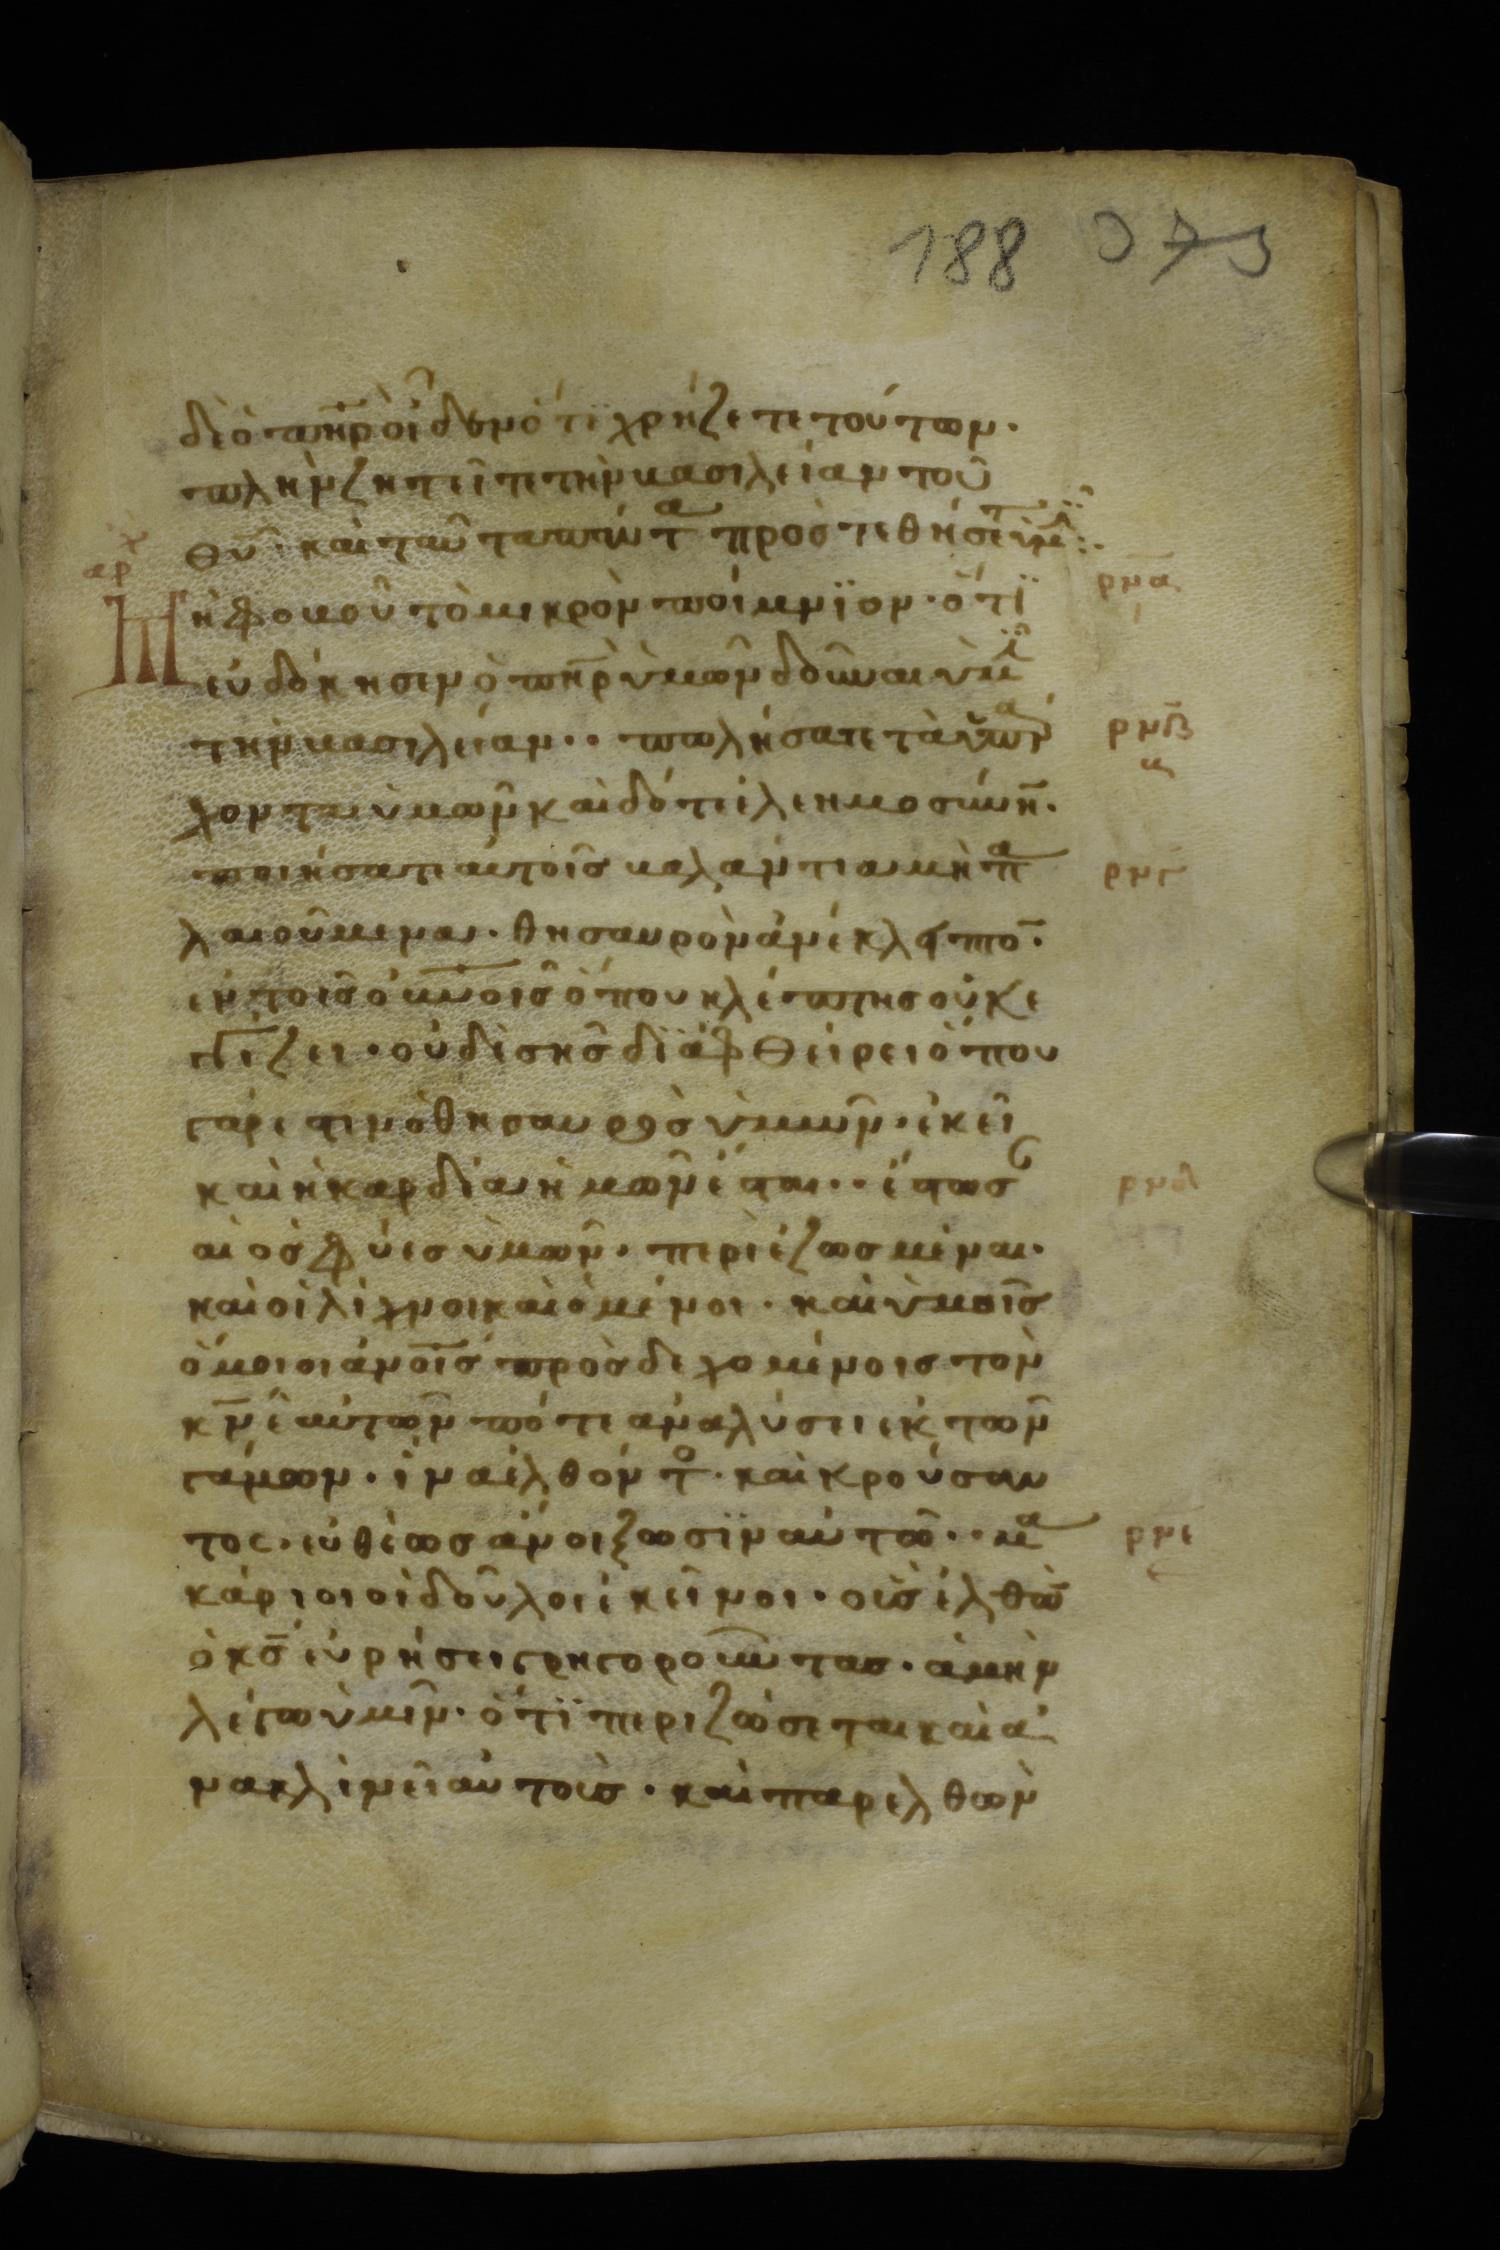 188 373
δὲ ὁ πη̅ρ οἶδεν ὅτϊ χρήζετε τούτων·
πλὴν ζητεῖτε τὴν βασιλείαν τοῦ
θυ̅· καὶ ταῦτα πάντα προστεθήσεται ὑμῖν:·
αρχ
Μὴ φοβοῦ τὸ μικρὸν ποίμνϊον· ὅτϊ ρμα
εὐδόκησεν ὁ πη̅ρ ὑμῶν δοῦναι ὑμῖν
τὴν βασιλείαν·· πωλήσατε τὰ ὑπάρ ρμβ
χοντα ὑμῶν καὶ δότε ἐλεημοσύνην·
ποιήσατε αὐτοῖς βαλάντια μὴ πα ρμγ
λαιούμενα· θησαυρὸν ἀνέκλειπτον·
ἐν τοῖς οὐνοις ὅπου κλέπτης οὐκ ἐγ
γίζει· οὐδὲ σὴς δϊαφθείρει ὅπου
γάρ ἐστιν ὁ θησαυρὸς ὑμῶν· ἐκεῖ
καὶ ἡ καρδία ἡμῶν ἔσται·· ἔστωσαν ρμδ
αἱ ὀσφύες ὑμῶν· περιεζωσμέναι·
καὶ οἱ λύχνοι καιόμενοι· καὶ ὑμεῖς
ὅμοιοι ἀνοις προσδεχομένοις τὸν
κν̅ ἑαυτῶν πότε ἀναλύσει ἐκ τῶν
γάμων· ἵνα ἐλθόντος· καὶ κρούσαν
τος· εὐθέως ἀνοίξωσϊν αὐτῶ·· μα ρμε
κάριοι οἱ δοῦλοι ἐκεῖνοι· οὓς ἐλθὼν
ὁ κς̅ εὑρήσει γρηγοροῦντας· ἀμὴν
λέγω ὑμῖν· ὅτϊ περιζώσεται καὶ ἀ
νακλινεῖ αὐτοὺς· καὶ παρελθὼν